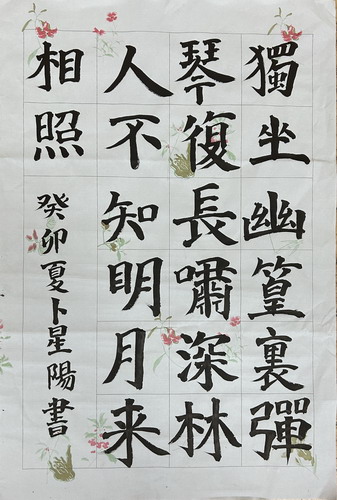 獨坐幽篁裏彈
琴復長嘯深林
人不知明月来
相照
癸卯夏卜星陽書